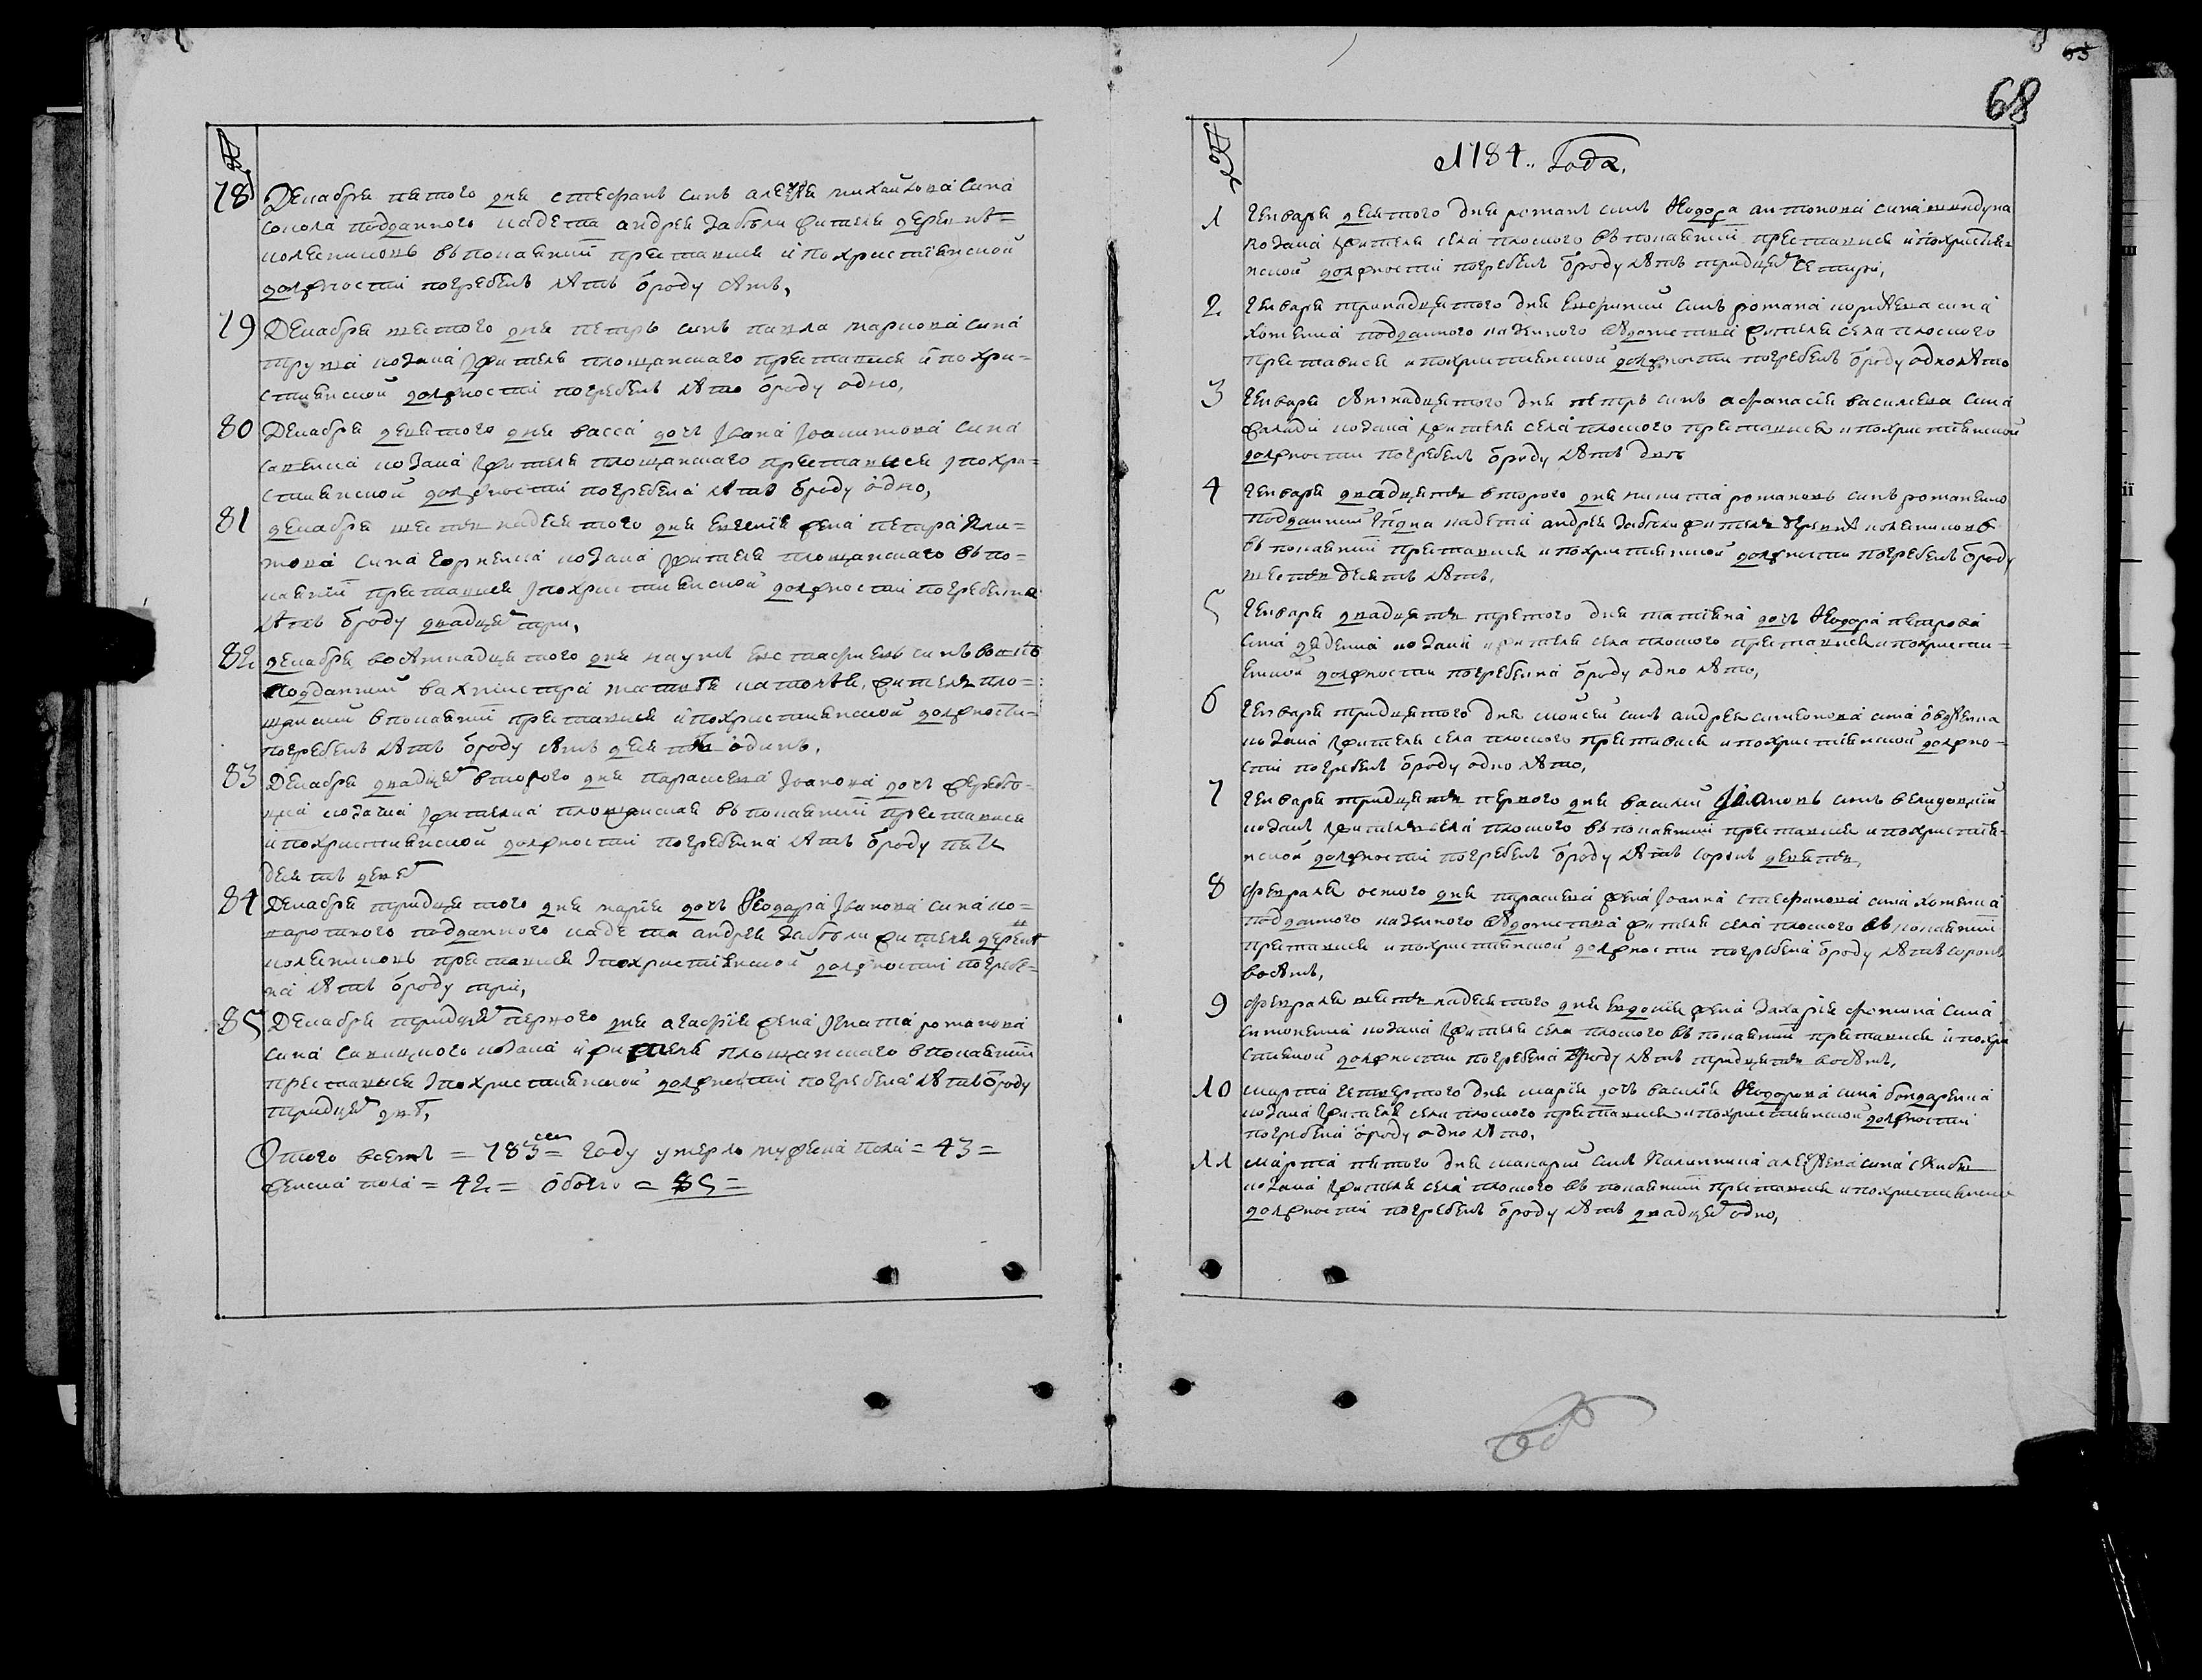 65
68
№
78 Декабря пятого дня стефанъ синъ алеѯѣя михайлова сина
сокола подданного кадета андрея забѣли жителя деревнѣ=
колесниковъ въ покаянїи преставися и по христїянской
должности погребенъ лѣтъ ѿроду сѣмъ,
79 Декабря шестого дня петръ синъ павла маркова сина
козака жителя площанского преставися и по хри=
стиянской должности погребенъ лѣто ѿроду одно,
80 Декабря девятого дня васса дочъ Іоана Іоакимова сина
савенка козака жителя площанского преставися і по хри=
стиянской должности погребена лѣто ѿроду одно,
81 декабря шестьнадесятого дня евгенїя жена петра кли=
мова сина горненка козака жителя площанского въ по=
каянїи преставися і по християнской должности погребенна
лѣтъ ѿроду двадцет три,
82 декабря восѣмнадцятого дня наумъ евстафиевъ синъ
подданний вахмистра матвѣя житель пло=
щанский в покаянїи преставися и по християнской должности=
погребенъ лѣтъ ѿроду сѣмъ десятъ одинъ.
83 Декабря двадцет второго дня параскева Іоанова дочъ
козачка жителка площанская въ покаянїи преставися
и по християнской должности погребенна лѣтъ ѿроду пять
десятъ девет
84 Декабря тридцятого дня марїя дочъ Ѳеодора Іванова сина ко=
варотного подданного кадета андрея забѣли жителя деревнѣ
колесниковъ преставися і по християнской должности погребе=
на лѣтъ ѿроду три,
85 Декабря тридцет первого дня агафїя жена Ігната романова
сина козака и жителя площанского в покаянїи
преставися і по християнской должности погребена лѣтъ ѿроду
тридцет двѣ,
Ѿтого всемъ = 783 = году умерло мужеска пола = 43 =
женска пола = 42 = ѿбоего = 85 =
№
1784.. Года,
1 Генваря десятого дня романъ синъ Ѳеодора антонова сина
козака жителя села плоского въ покаянїи преставися и по христия
нской должности погребенъ ѿроду лѣтъ тридцет четири,
2 Генваря тринадцятого дня синъ романа корнѣева сина
хоменка подданного казенного вѣдомства жителя села плоского
преставися и по християнской должности погребенъ ѿроду одно лѣто
3 Генваря сѣмнадцятого дня петръ синъ афанасїя василева сина
козака жителя села плоского преставися и по християнской
должности погребенъ ѿроду лѣтъ двох
4 Генваря двадцять второго дня никита романовъ синъ романенко
подданний кадета андрея забѣли житель деревнѣ колесниковъ
въ покаянїи преставися и по християнской должности погребенъ ѿроду
шестьдесятъ лѣтъ.
5 Генваря двадцять третого дня татїяна дочъ Ѳеодора петрова
сина козака жителя села плоского преставися и по христи=
янской должности погребенна ѿроду одно лѣто,
6 Генваря тридцятого дня моисей синъ андрея симеонова сина
козака жителя села плоского преставися и по християнской должно=
сти погребенъ ѿроду одно лѣто,
7 Генваря тридцять первого дня василий Іоановъ синъ
козакъ житель села плоского въ покаянїи преставися и по христия=
нской должности погребенъ ѿроду лѣтъ сорокъ девять,
8 Февраля осмого дня параскева жена Іоанна стефанова сина хоменка
подданного казенного вѣдомства жителя села плоского въ покаянїи
преставися и по християнской должности погребена ѿроду лѣтъ сорокъ
восѣмъ,
9 Февраля шестьнадесятого дня евдокия жена захарїя фомина сина
симоненка козака жителя села плоского въ покаянїи преставися и по хри
стияной должности погребена ѿроду лѣтъ тридцять восѣмъ,
10 марта четвертого дня марїя дочъ василїя Ѳеодорова сина бондаренка
козака жителя села плоского преставися и по християнской должности
погребена ѿроду одно лѣто.
11 марта пятого дня макарий синъ алеѯѣева сина
козака жителя села плоского въ покаянїи преставися и по християнской
должности погребенъ ѿроду лѣтъ двадцет одно,